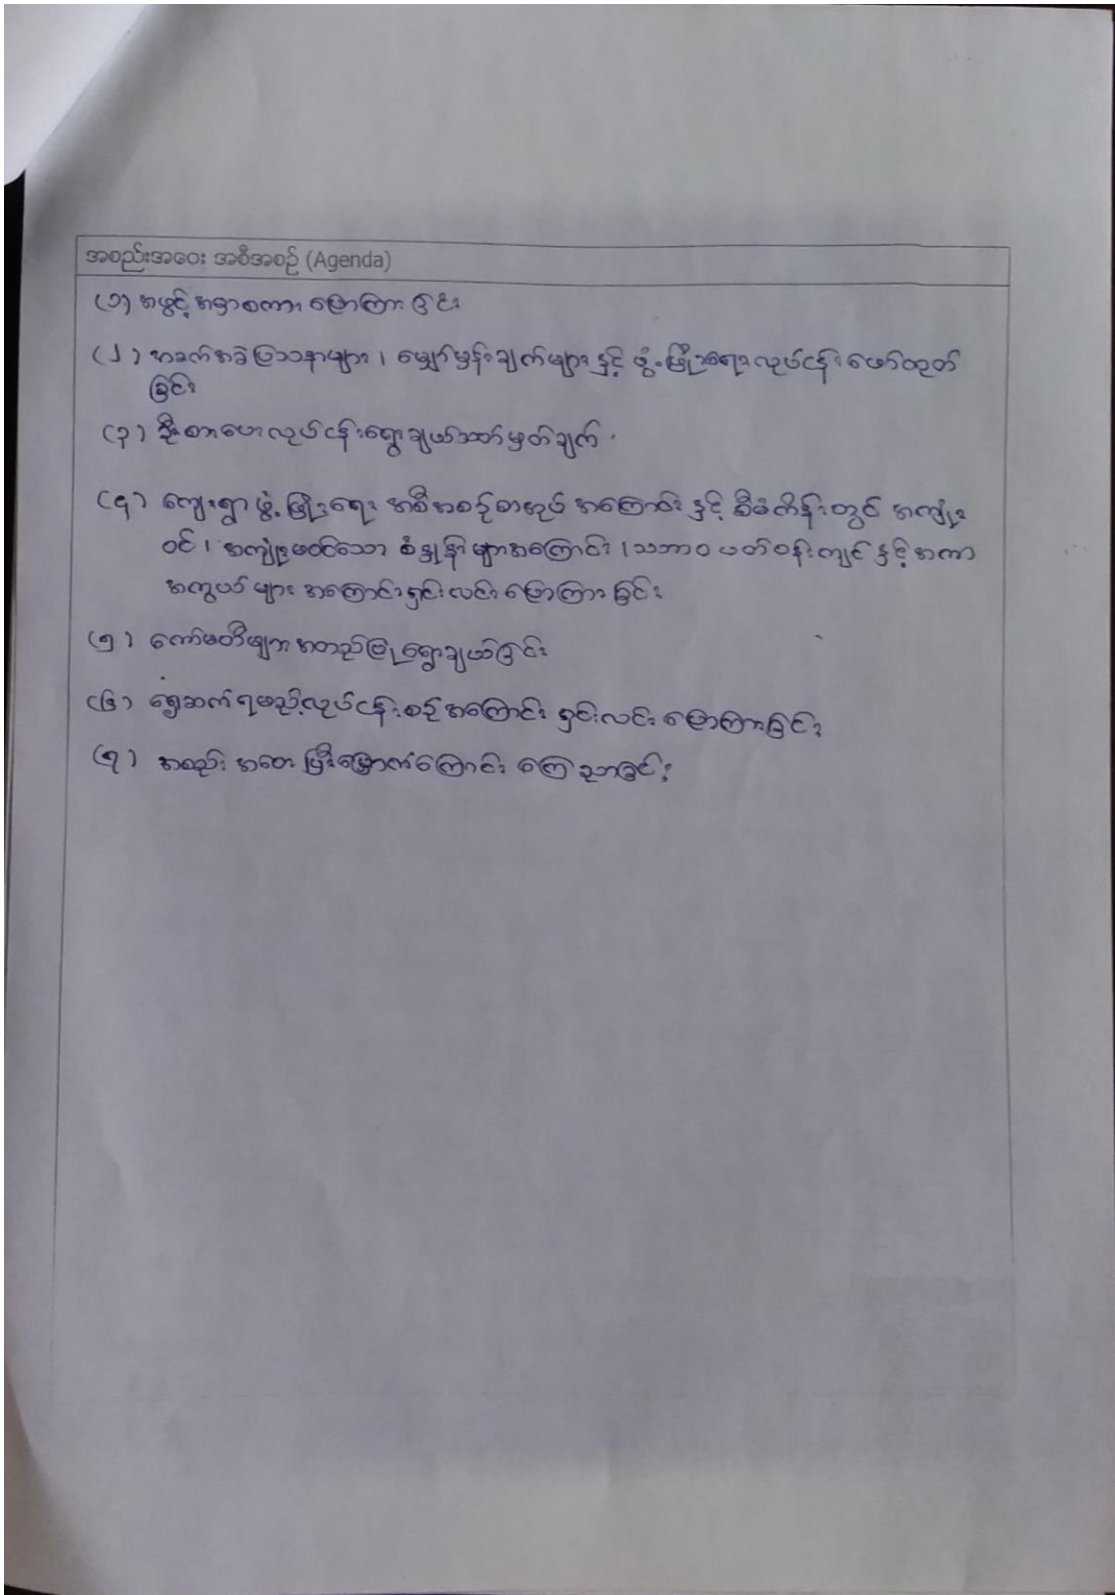 အစည်းအဝေး အစီအစဉ် (Agenda)
(၁) အဖွင့် အမှာစကား ပြောကြားခြင်း
(၂) အခက်အခဲပြဿနာများ ၊ မျှော်မှန်းချက်များ နှင့် ဖွံ့ဖြိုးရေးလုပ်ငန်း ဖော်ထုတ်
ခြင်း
(၃) ဦးစားပေးလုပ်ငန်းရွေးချယ်သတ်မှတ်ချက်
(၄) ကျေးရွာ ဖွံ့ဖြိုးရေး အစီအစဉ်စာအုပ် အကြောင်း နှင့် စီမံကိန်းတွင် အကျုံး
ဝင် ၊ အကျုံးမဝင်သော စံနှုန်းများအကြောင်း ၊ သဘာဝ ပတ်ဝန်းကျင် နှင့် အကာ
အကွယ် များ အကြောင်းရှင်းလင်း ပြောကြားခြင်း
(၅) ကော်မတီများ အတည်ပြုရွေးချယ်ခြင်း
(၆) ရှေ့ဆက်ရမည့်လုပ်ငန်းစဉ် အကြောင်း ရှင်းလင်း ပြောကြားခြင်း
(၇) အစည်း အဝေး ပြီးမြောက်ကြောင်း ကြေညာခြင်း